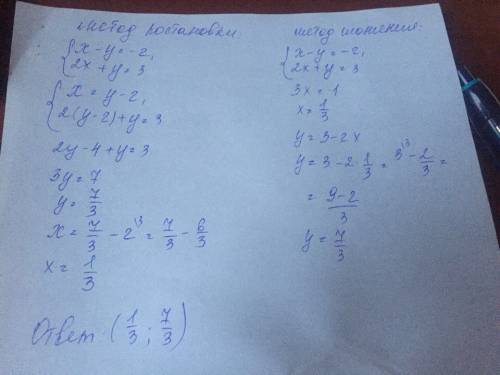 метод постановки:
{x-y=-2,
2x+y=3
{x=y-2,
2(y-2)+y=3
2y-4+y=3
3y=7
y=7/3
x=7/3-2\3=7/3-6/3
x=1/3
метод сложения:
{x-y=-2,
2x+y=3
3x=1
x=1/3
y=3-2x
y=3-2·1/3=3\3-2/3=
=9-2/3
y=7/3
Ответ: (1/3; 7/3)